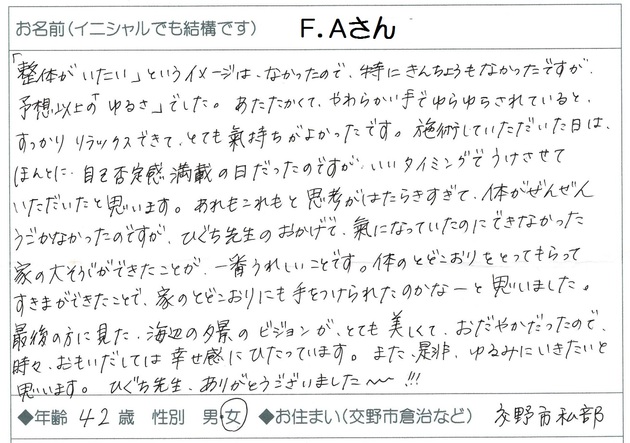 お名前(イニシャルでも結構です) F.Aさん
「整体がいたい」というイメージは、なかったので、特にきんちょうもなかったですが、
予想以上の「ゆるさ」でした。あたたかくて、やわらかい手でゆらゆらされていると、
すっかりリラックスできて、とても氣持ちがよかったです。施術していただいた日は、
ほんとに、自己否定感満載の日だったのですが、いいタイミングでうけさせて
いただいたと思います。あれもこれもと思考がはたらきすぎて、体がぜんぜん
うごかなかったのですが、ひぐち先生のおかげで、氣になっていたのにできなかった
家の大そうじができたことが、一番うれしいことです。体のとどこおりをとってもらって
すきまができたことで、家のとどこおりにも手をつけられたのかなーと思いました。
最後の方に見た、海辺の夕景のビジョンが、とても美しくて、おだやかだったので、
時々、おもいだしては幸せ感にひたっています。また、是非、ゆるみにいきたいと
思います。ひぐち先生、ありがとうございました〜!!!
◆年齢 42歳 性別 男・女 ◆お住まい(交野市倉治など) 交野市私部